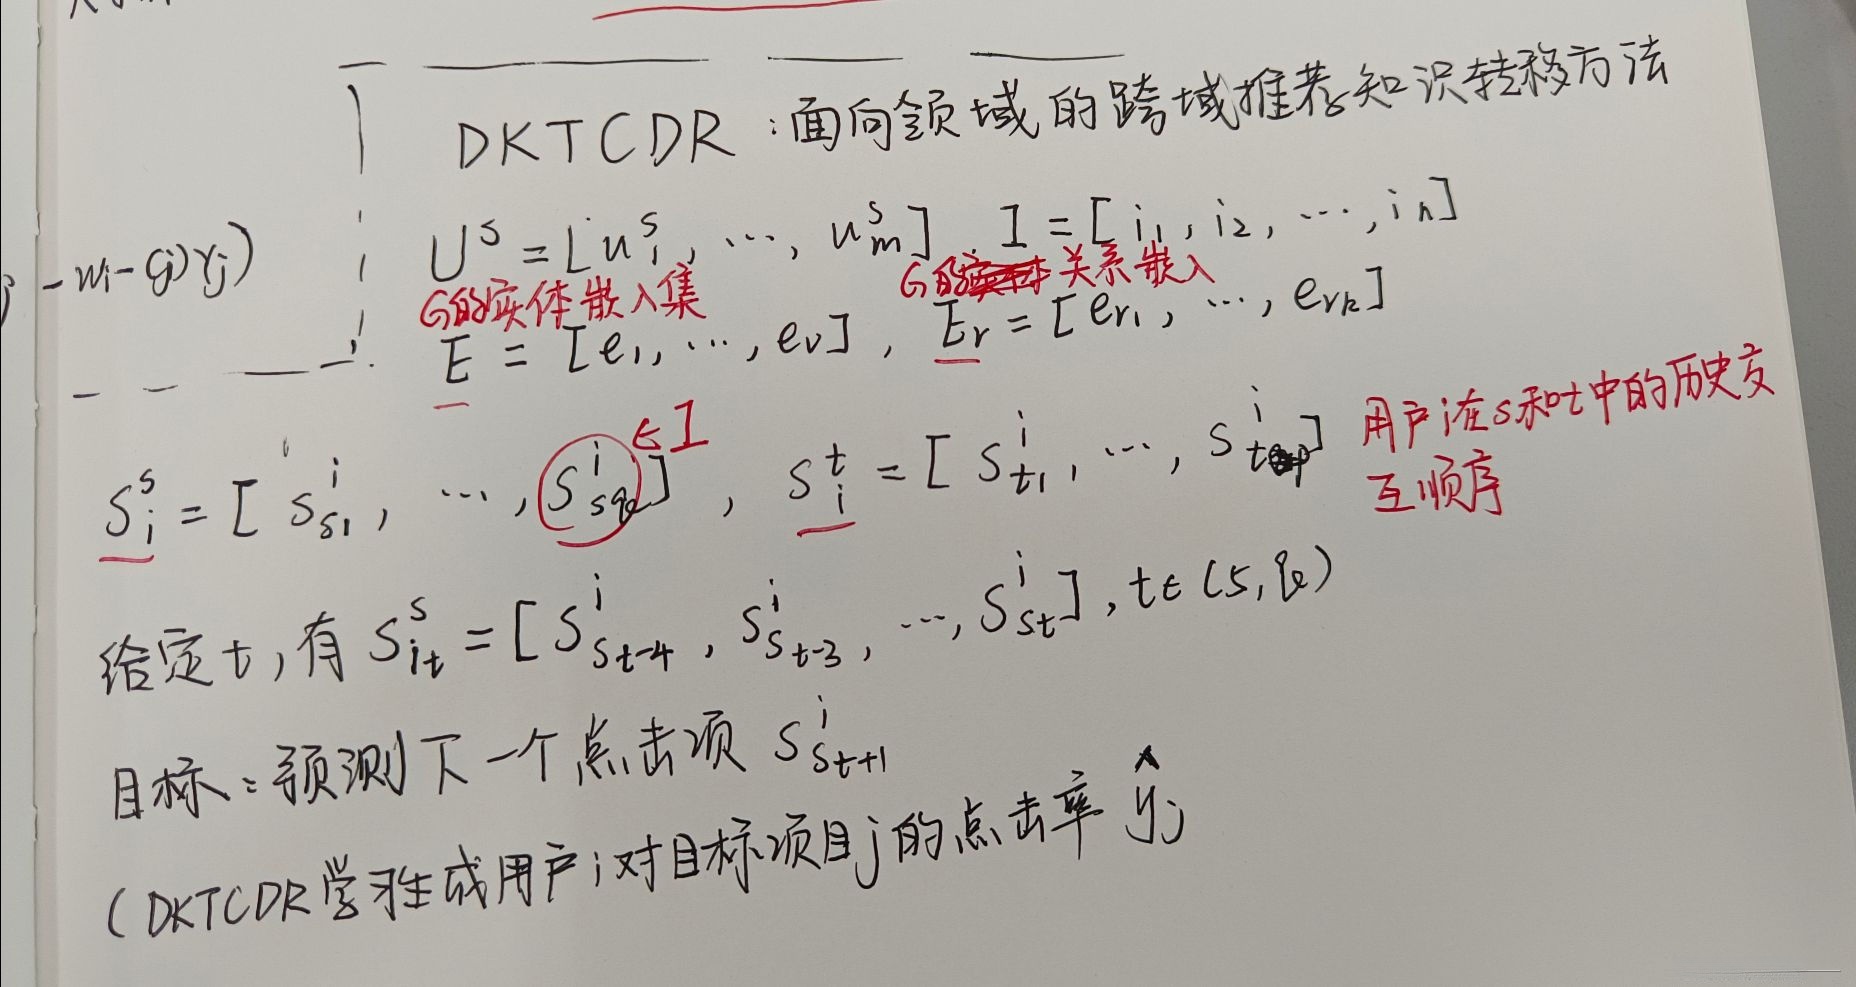 DKTCDR：面向领域的跨域推荐知识转移方法
U^s = [u_1^s, ..., u_m^s] , I = [i_1, i_2, ..., i_n]
- w_i - C_j)Y_j)
G的实体嵌入集 G的关系嵌入
E = [e_1, ..., e_v] , E_r = [e_{r1}, ..., e_{rk}]
∈I
S_i^s = [s_{s1}^i, ..., s_{sq}^i] , S_i^t = [s_{t1}^i, ..., s_{tp}^i] 用户i在s和t中的历史交
互顺序
给定t,有 S_{it}^s = [S_{s_{t-4}}^i, S_{s_{t-3}}^i, ..., S_{st}^i], t∈(5,q)
目标：预测下一个点击项 S_{s_{t+1}}^i
(DKTCDR学习生成用户i对目标项目j的点击率 ŷ_j